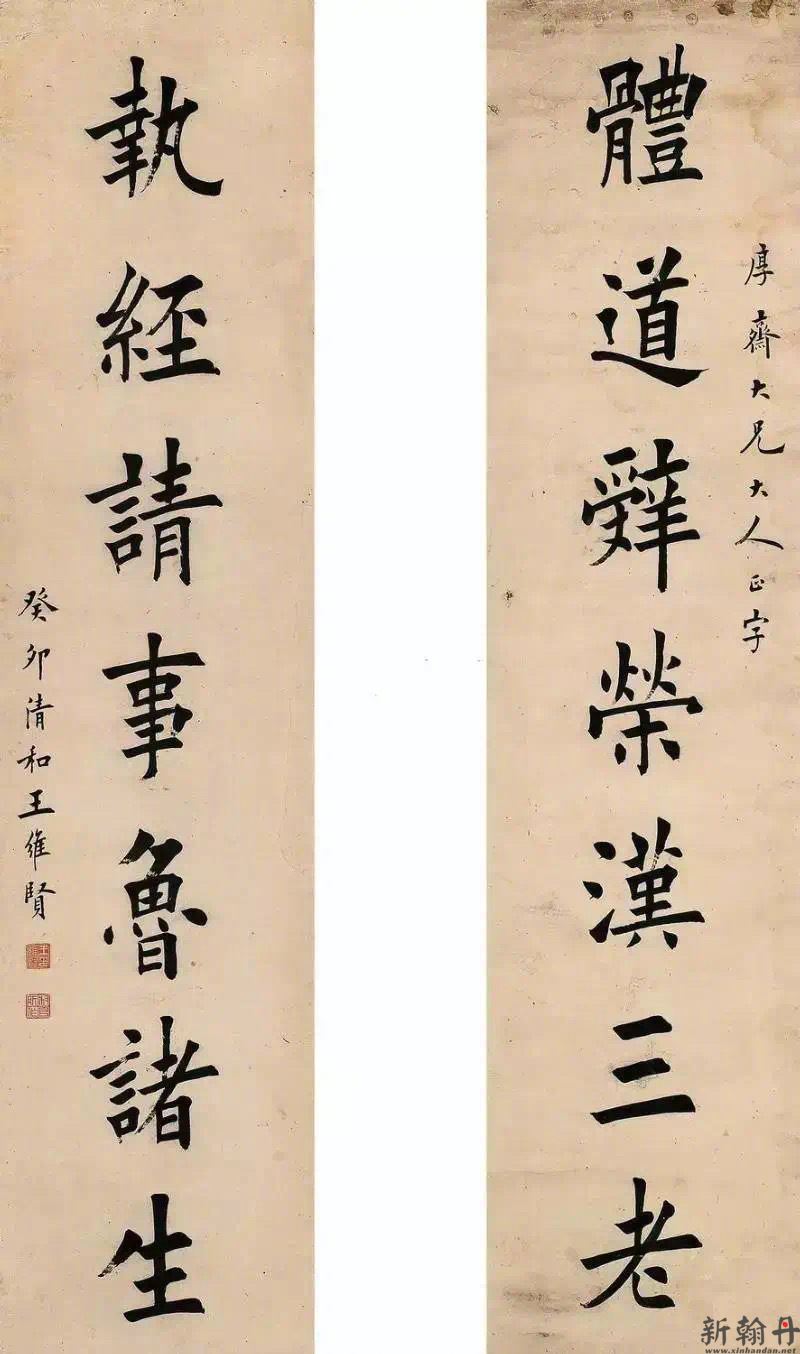 厚齋大兄大人正字
體道辤榮漢三老
執經請事魯諸生
癸卯清和王維賢
新翰丹
www.xinhandan.net